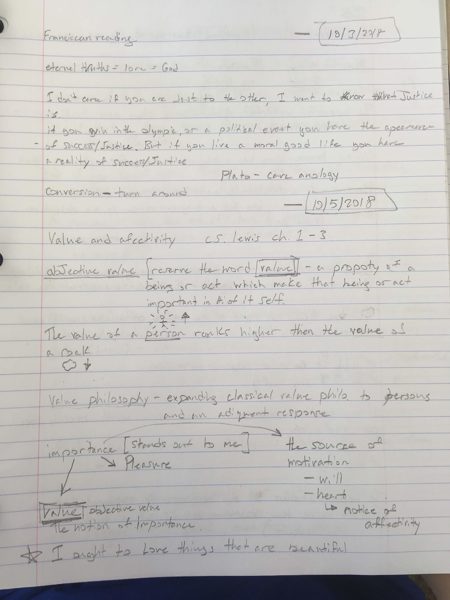 Franciscan reading — 10/3/2018
eternal truths = love = God
I don't care if you are Just to the other, I want to know what Justice
is
if you win in the olympic, or a political event you have the apperence
- of success/Justice. But if you live a moral good life you have
a reality of success/Justice
Plato - cave anology
Conversion - turn around
— 10/5/2018
Value and afectivity C.S. Lewis ch. 1-3
objective value [reserve the word value] - a propoty of a
being or act which make that being or act
important in of it self.
The value of a person ranks higher then the value of
a rock
Value philosophy - expanding classical value philo to persons
and an adiquent response
importance [stands out to me] the source of
Pleasure motivation
- will
- heart
notice of
affectivity
value objective value
The notion of Importance.
I ought to love things that are beautiful